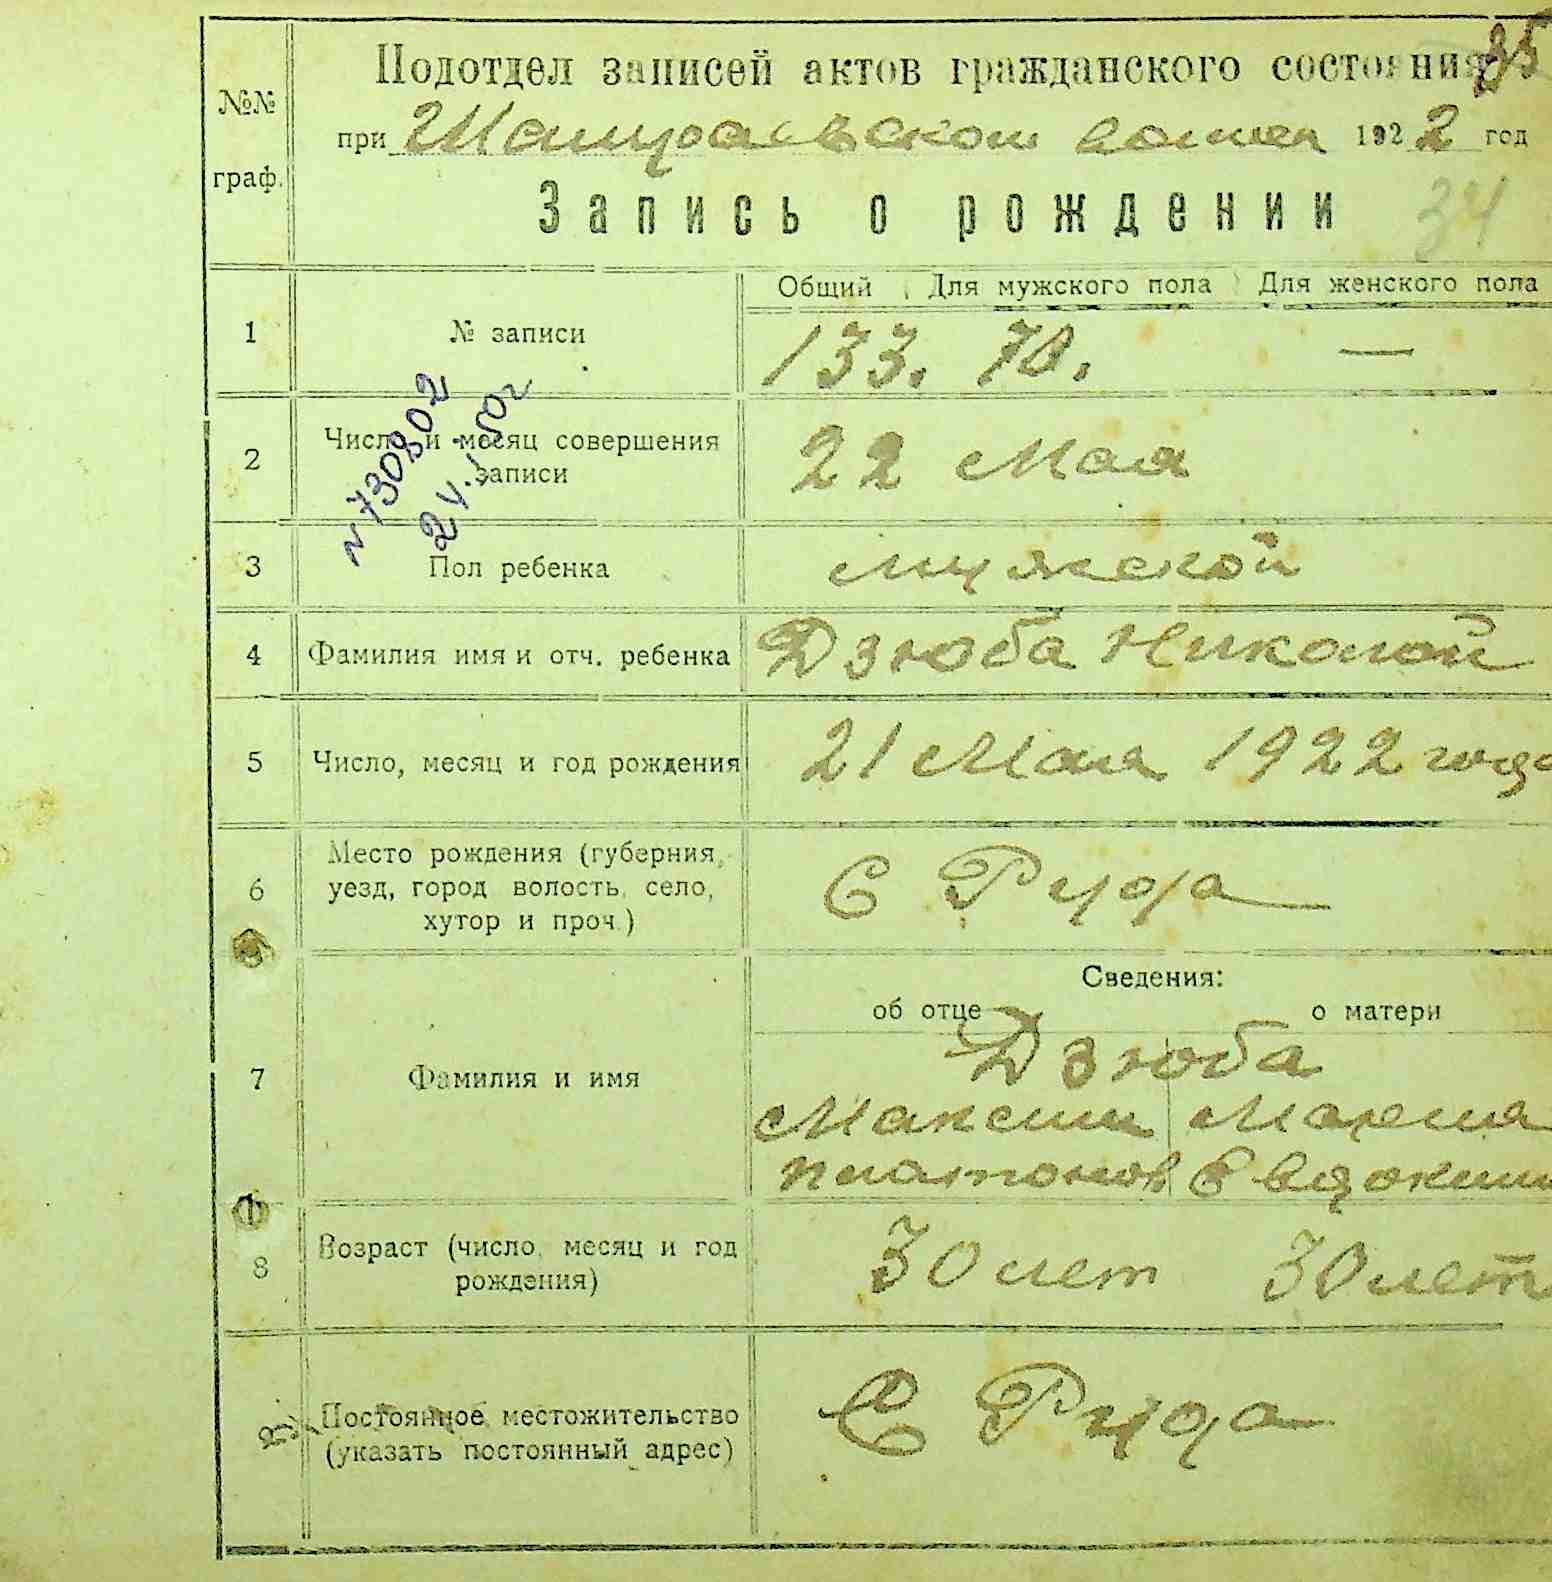 35
Подотдел записей актов гражданского состояния
№№ граф.
при Шамраевском 1922 год
Запись о рождении
34
Общий Для мужского пола Для женского пола
1 № записи 133. 70. —
2 Число и месяц совершения записи 22 Мая
№ 730802
3 Пол ребенка мужской
4 Фамилия имя и отч. ребенка Дзюба Николай
5 Число, месяц и год рождения 21 Мая 1922 года
6 Место рождения (губерния, уезд, город волость, село, хутор и проч.) С Руда
Сведения:
об отце о матери
7 Фамилия и имя Дзюба
Максим Мария
Платонов Евдоким
8 Возраст (число, месяц и год рождения) 30 лет 30 лет
Постоянное местожительство (указать постоянный адрес) С Руда